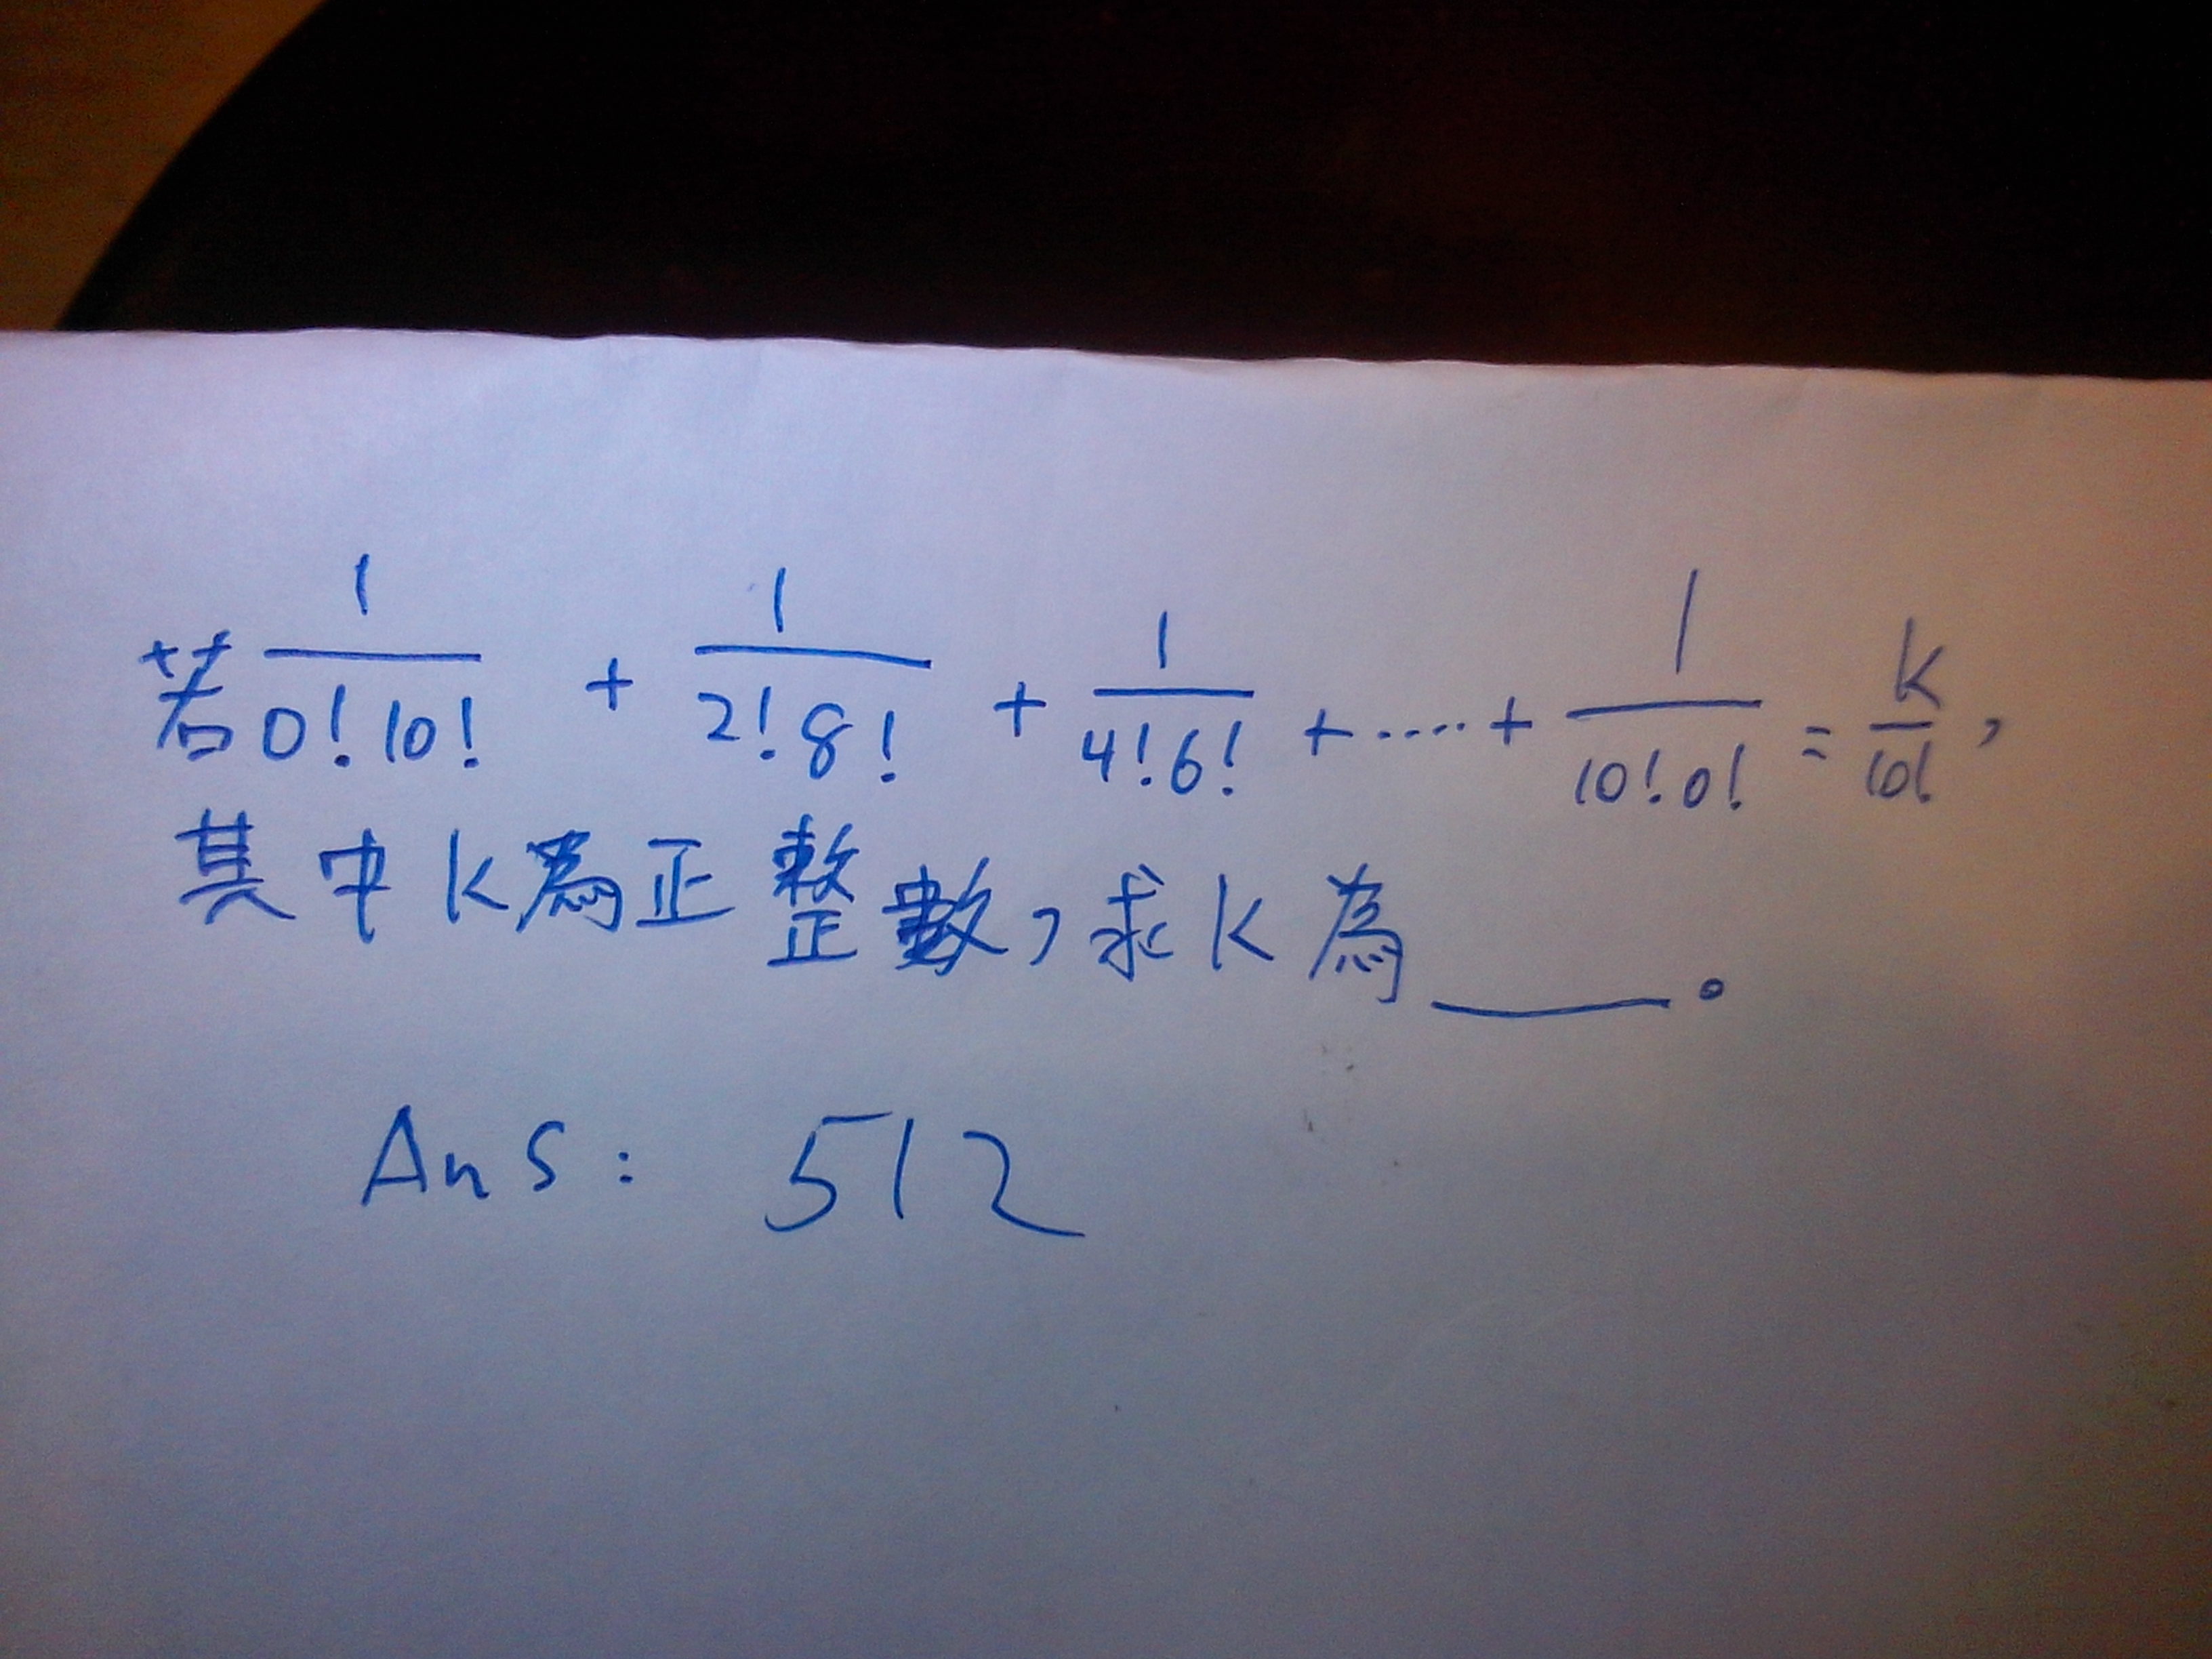 若 1/(0!10!) + 1/(2!8!) + 1/(4!6!) + ..... + 1/(10!0!) = k/10! ,
其中 k 為正整數,求 k 為____。
Ans: 512